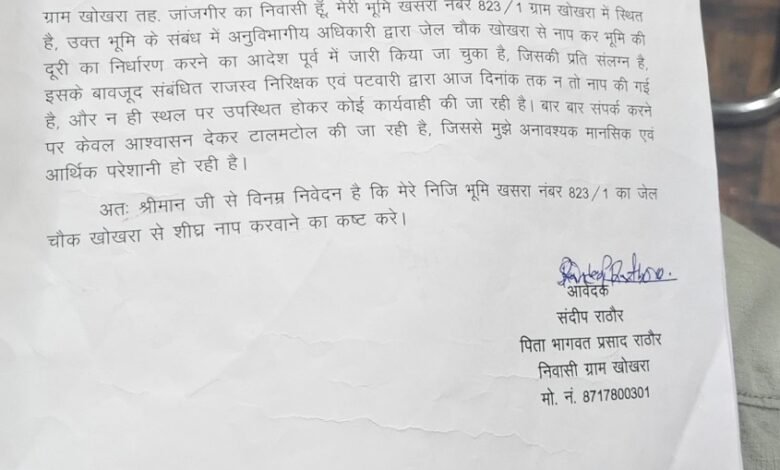 ग्राम खोखरा तह. जांजगीर का निवासी हूँ, मेरी भूमि खसरा नंबर 823/1 ग्राम खोखरा में स्थित
है, उक्त भूमि के संबंध में अनुविभागीय अधिकारी द्वारा जेल चौक खोखरा से नाप कर भूमि की
दूरी का निर्धारण करने का आदेश पूर्व में जारी किया जा चुका है, जिसकी प्रति संलग्न है,
इसके बावजूद संबंधित राजस्व निरिक्षक एवं पटवारी द्वारा आज दिनांक तक न तो नाप की गई
है, और न ही स्थल पर उपस्थित होकर कोई कार्यवाही की जा रही है। बार बार संपर्क करने
पर केवल आश्वासन देकर टालमटोल की जा रही है, जिससे मुझे अनावश्यक मानसिक एवं
आर्थिक परेशानी हो रही है।
अतः श्रीमान जी से विनम्र निवेदन है कि मेरे निजि भूमि खसरा नंबर 823/1 का जेल
चौक खोखरा से शीघ्र नाप करवाने का कष्ट करे।
आवेदक
संदीप राठौर
पिता भागवत प्रसाद राठौर
निवासी ग्राम खोखरा
मो. नं. 8717800301